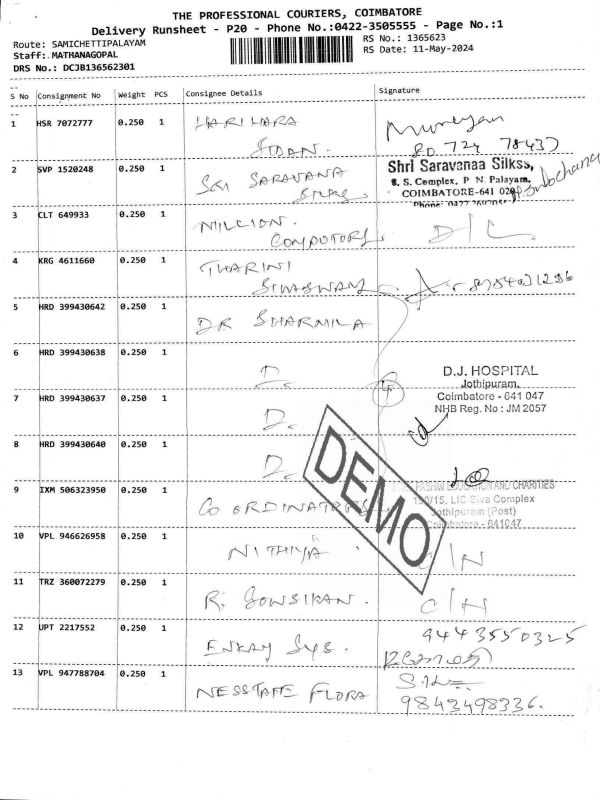 THE PROFESSIONAL COURIERS, COIMBATORE
Delivery Runsheet - P20 - Phone No.:0422-3505555 - Page No.:1
Route: SAMICHETTIPALAYAM
RS No.: 1365623
Staff: MATHANAGOPAL
RS Date: 11-May-2024
DRS No.: DCJB136562301
S No Consignment No Weight PCS Consignee Details Signature
1 HSR 7072777 0.250 1 HARIHARA
2 SVP 1520248 0.250 1 SRI SARAVANA
Shri Saravanaa Silkss,
8. S. Complex, P. N. Palayam,
COIMBATORE-641 020
3 CLT 649933 0.250 1 MILLION.
COMPUTORS D/L
4 KRG 4611660 0.250 1 THARINI
SIVASWAMY
5 HRD 399430642 0.250 1 DR SHARMILA
6 HRD 399430638 0.250 1 D.
D.J. HOSPITAL
Jothipuram,
Coimbatore - 641 047
NHB Reg. No : JM 2057
7 HRD 399430637 0.250 1 D.
8 HRD 399430640 0.250 1 D.
DEMO
9 IXM 506323950 0.250 1 CO ORDINATORS
EDUCATION AND CHARITIES
LIC Siva Complex
Jothipuram (Post)
Coimbatore - 641047
10 VPL 946626958 0.250 1 NITHIYA C/N
11 TRZ 360072279 0.250 1 R. GOWSIKAN. C/N
12 UPT 2217552 0.250 1 ENKAY SYS. 9443550325
13 VPL 947788704 0.250 1 NESSTAFF FLORA
9843498336.